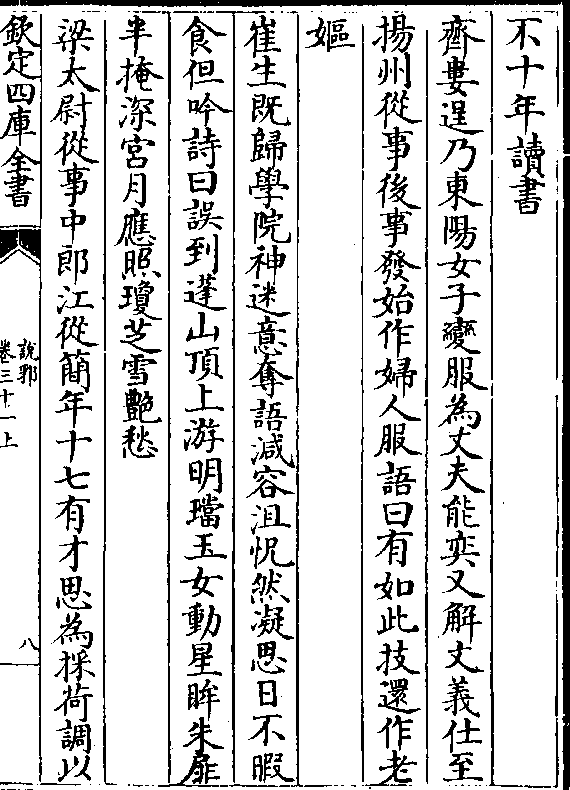 不十年讀書
齊婁逞乃東陽女子變服為丈夫能奕又解文義仕至
揚州從事後事發始作婦人服語曰有如此技還作老
嫗
崔生既歸學院神迷意奪語減容沮怳然凝思日不暇
食但吟詩曰誤到蓬山頂上游明璫玉女動星眸朱扉
半掩深宮月應照瓊芝雪艷愁
梁太尉從事中郎江從簡年十七有才思為採荷調以
欽定四庫全書
說郛
卷三十一上
八